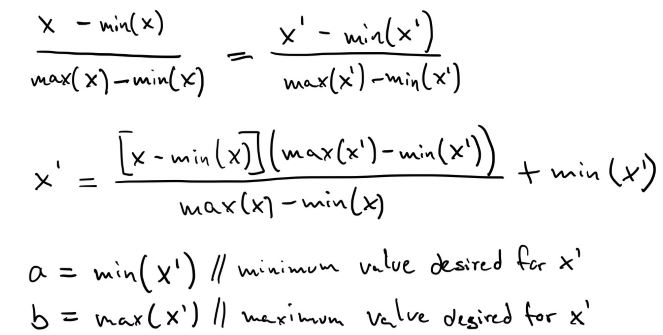 x - min(x) / max(x) - min(x) = x' - min(x') / max(x') - min(x')
x' = [x - min(x)](max(x') - min(x')) / max(x) - min(x) + min(x')
a = min(x') // minimum value desired for x'
b = max(x') // maximum value desired for x'